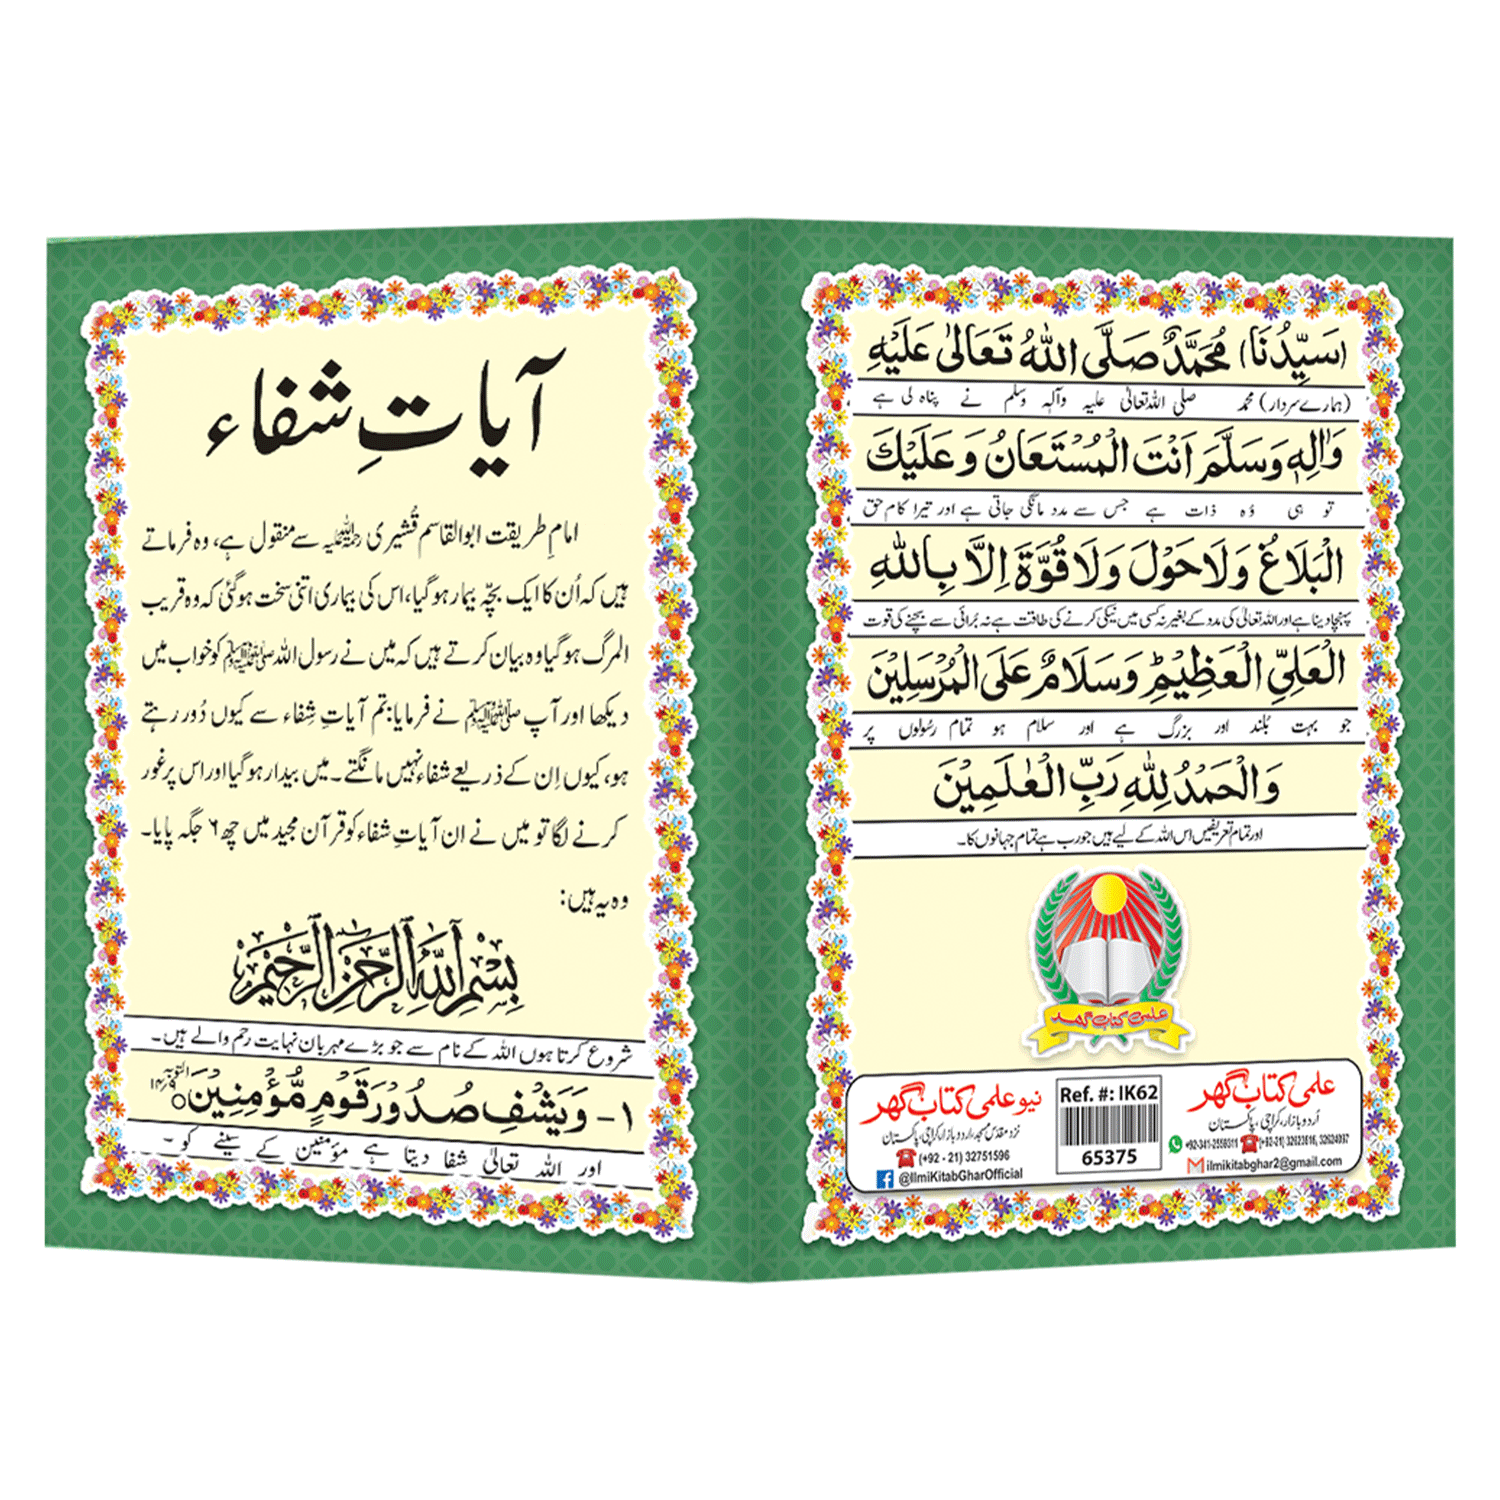 آیاتِ شفاء
امامِ طریقت ابوالقاسم قُشیری رحمۃ اللہ علیہ سے منقول ہے، وہ فرماتے
ہیں کہ اُن کا ایک بچّہ بیمار ہو گیا، اس کی بیماری اتنی سخت ہو گئی کہ وہ قریب
المرگ ہو گیا وہ بیان کرتے ہیں کہ میں نے رسول اللہ ﷺ کو خواب میں
دیکھا اور آپ ﷺ نے فرمایا: تم آیاتِ شِفاء سے کیوں دُور رہتے
ہو، کیوں اِن کے ذریعے شفاء نہیں مانگتے۔ میں بیدار ہو گیا اور اس پر غور
کرنے لگا تو میں نے ان آیاتِ شفاء کو قرآن مجید میں چھ ۶ جگہ پایا۔
وہ یہ ہیں:
بِسْمِ اللهِ الرَّحْمٰنِ الرَّحِيْمِ
شروع کرتا ہوں اللہ کے نام سے جو بڑے مہربان نہایت رحم والے ہیں۔
۱- وَيَشْفِ صُدُوْرَ قَوْمٍ مُّؤْمِنِيْنَ ○ التوبۃ ۱۴/۹
اور اللہ تعالیٰ شفا دیتا ہے مؤمنین کے سینے کو۔
(سَيِّدُنَا) مُحَمَّدٌ صَلَّى اللهُ تَعَالٰى عَلَيْهِ
(ہمارے سردار) محمد صلی اللہ تعالیٰ علیہ وآلہٖ وسلم نے پناہ لی ہے
وَاٰلِهٖ وَسَلَّمَ اَنْتَ الْمُسْتَعَانُ وَعَلَيْكَ
تو ہی وُہ ذات ہے جس سے مدد مانگی جاتی ہے اور تیرا کام حق
الْبَلَاغُ وَلَا حَوْلَ وَلَا قُوَّةَ اِلَّا بِاللهِ
پہنچا دینا ہے اور اللہ تعالیٰ کی مدد کے بغیر نہ کسی میں نیکی کرنے کی طاقت ہے نہ بُرائی سے بچنے کی قوت
الْعَلِيِّ الْعَظِيْمِ ؕ وَسَلَامٌ عَلَى الْمُرْسَلِيْنَ
جو بہت بُلند اور بزرگ ہے اور سلام ہو تمام رسُولوں پر
وَالْحَمْدُ لِلّٰهِ رَبِّ الْعٰلَمِيْنَ
اور تمام تعریفیں اس اللہ کے لیے ہیں جو رب ہے تمام جہانوں کا۔
علمی کتاب گھر
علمی کتاب گھر
اُردو بازار، کراچی، پاکستان
+92-341-2559311 (+92-21) 32623616, 32624097
ilmikitabghar2@gmail.com
Ref. #: IK62
65375
نیو علمی کتاب گھر
نزد مقدّس مسجد، اردو بازار، کراچی، پاکستان
(+92 - 21) 32751596
@IlmiKitabGharOfficial